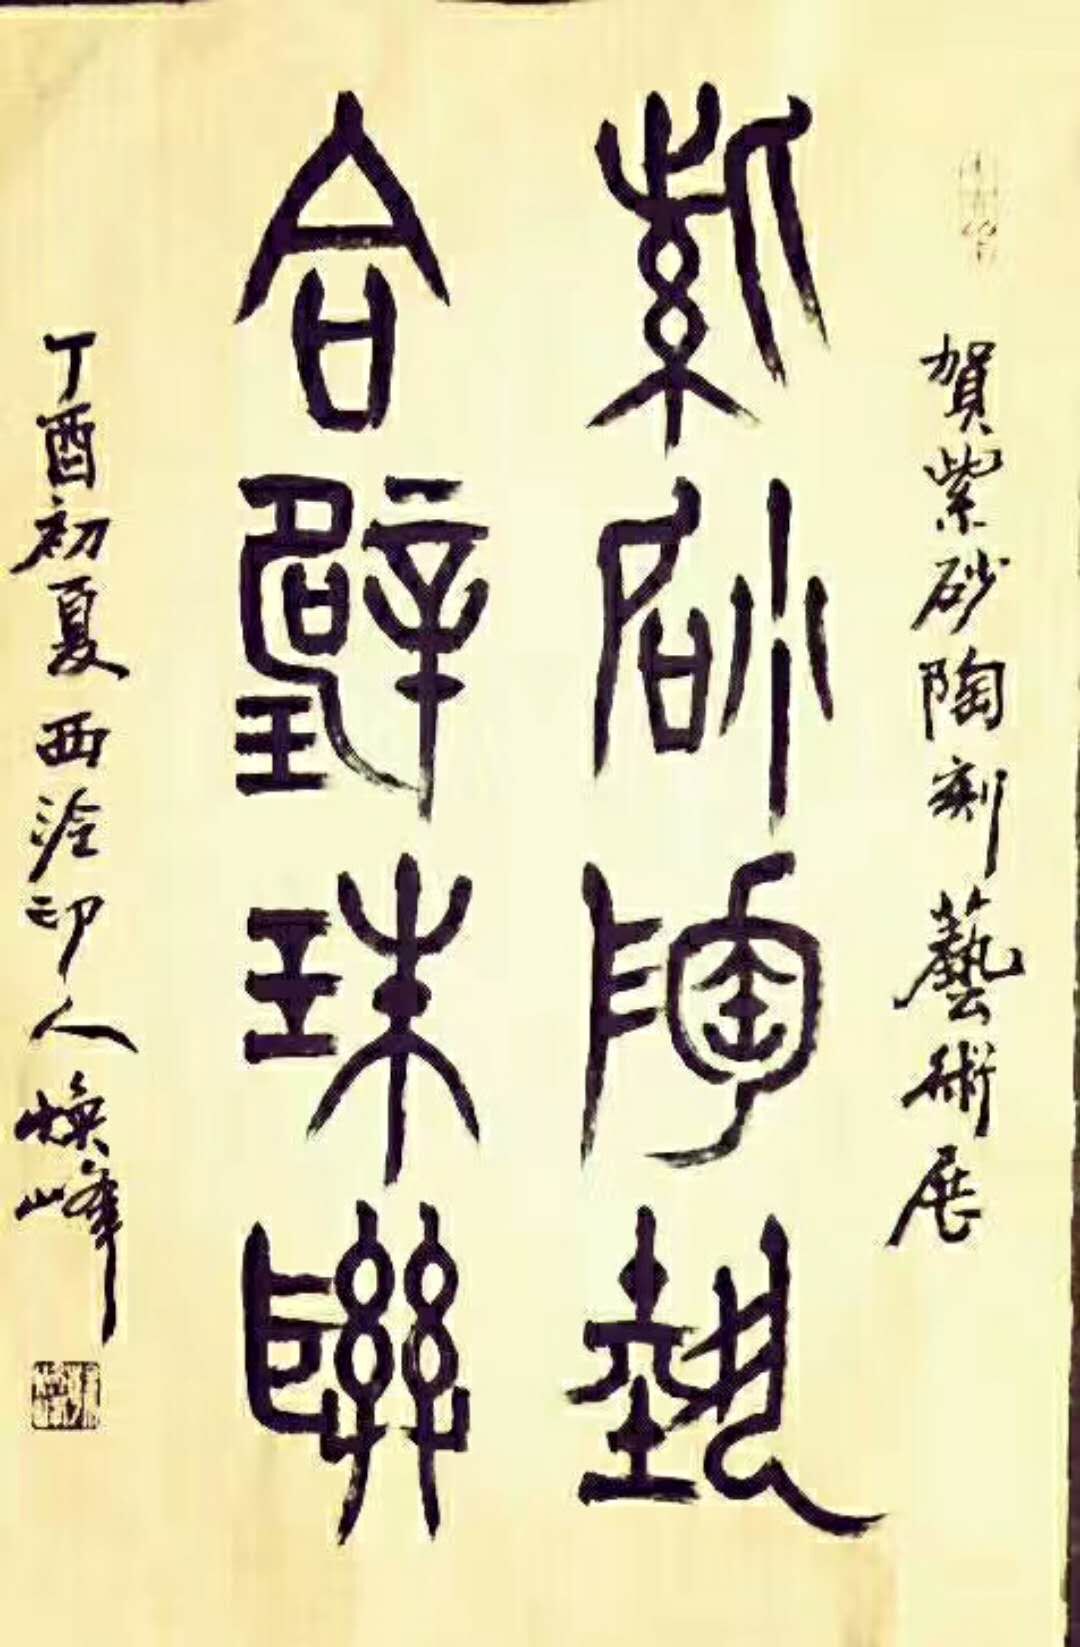 賀紫砂陶刻藝術展
紫砂陶埶
合璧珠聯
丁酉初夏西泠印人煥峰